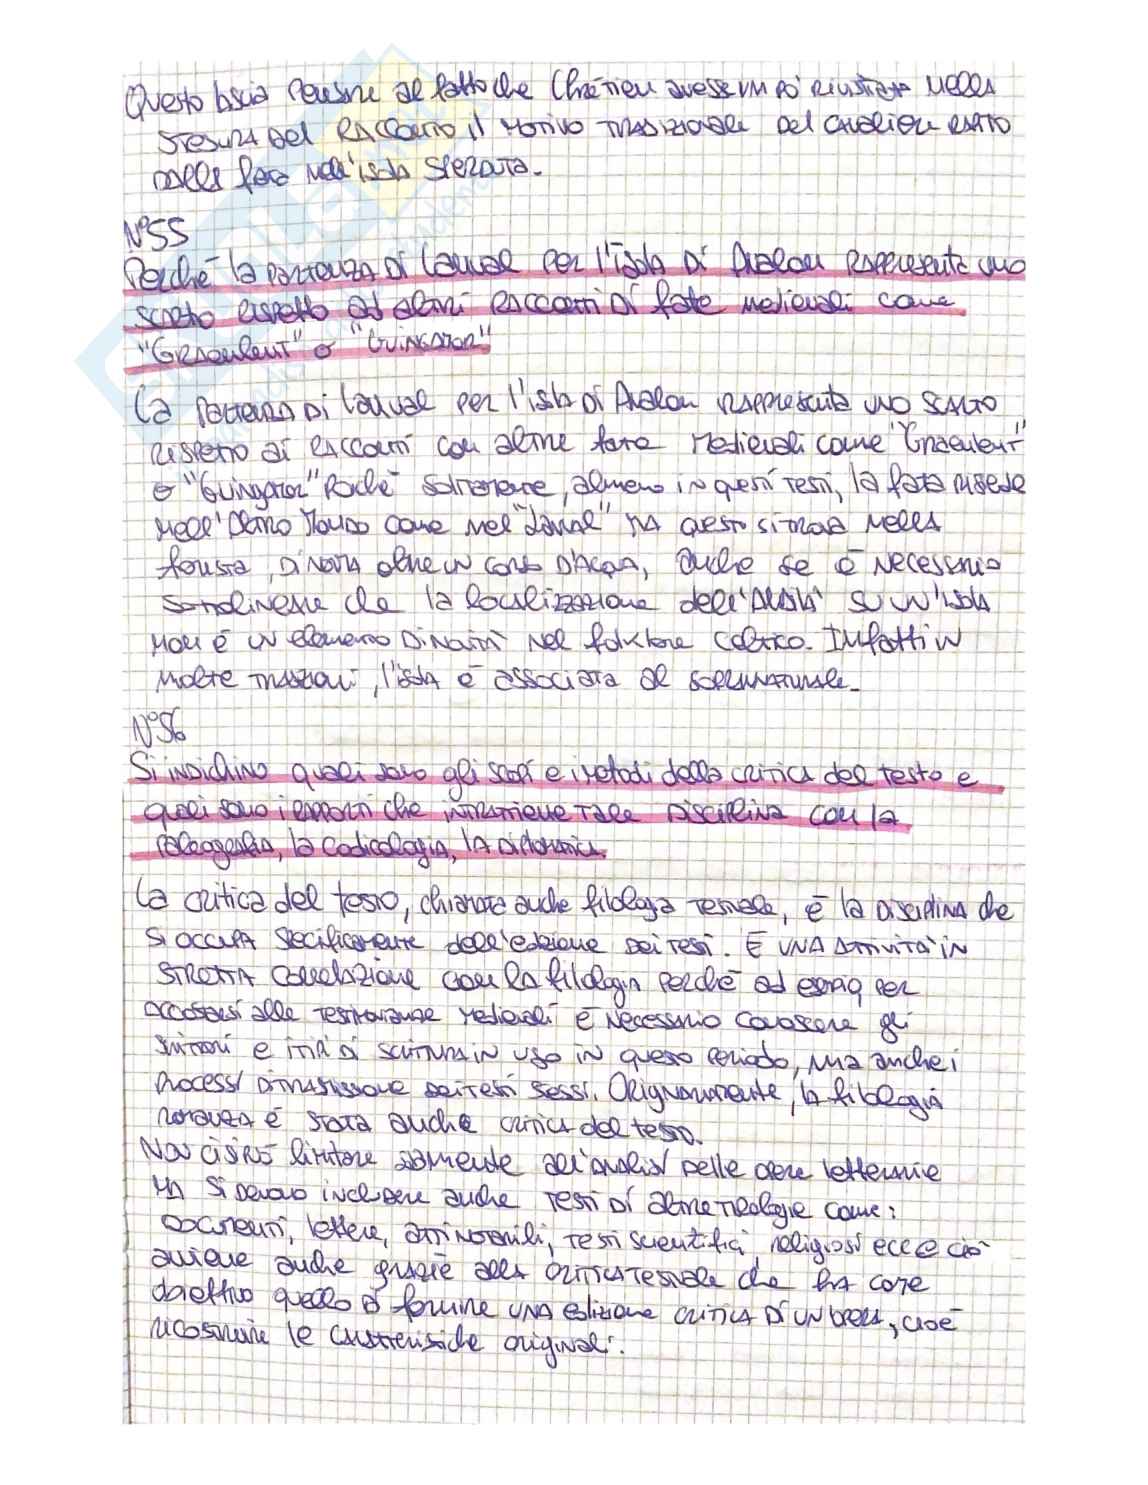 Questo lascia pensare al fatto che Chrétien avesse un po' rivisitato nella
stesura del racconto il motivo tradizionale del cavaliere rapito
dalla fata nell'isola sperduta.
N°55
Perché la partenza di Lanval per l'isola di Avalon rappresenta uno
scarto rispetto ad altri racconti di fate medievali come
"Graelent" o "Guingamor"
La partenza di Lanval per l'isola di Avalon rappresenta uno scarto
rispetto ai racconti con altre fate medievali come "Graelent"
o "Guingamor" poiché solitamente, almeno in questi testi, la fata risiede
nell'Altro Mondo come nel "Lanval" ma questo si trova nella
foresta, di norma oltre un corso d'acqua, anche se è necessario
sottolineare che la localizzazione dell'aldilà su un'isola
non è un elemento di novità nel folklore celtico. Infatti in
molte tradizioni, l'isola è associata al soprannaturale.
N°56
Si indichino quali sono gli scopi e i metodi della critica del testo e
quali sono i rapporti che intrattiene tale disciplina con la
paleografia, la codicologia, la diplomatica.
La critica del testo, chiamata anche filologia testuale, è la disciplina che
si occupa specificamente dell'edizione dei testi. È una attività in
stretta correlazione con la filologia perché ad esempio per
accostarsi alle testimonianze medievali è necessario conoscere gli
scrittori e i tipi di scrittura in uso in questo periodo, ma anche i
processi di trasmissione dei testi stessi. Originariamente, la filologia
romanza è stata anche critica del testo.
Non ci si può limitare solamente all'analisi delle opere letterarie
ma si devono includere anche testi di altre tipologie come:
documenti, lettere, atti notarili, testi scientifici, religiosi ecc e ciò
avviene anche grazie alla critica testuale che ha come
obiettivo quello di fornire una edizione critica di un'opera, cioè
ricostruire le caratteristiche originali.